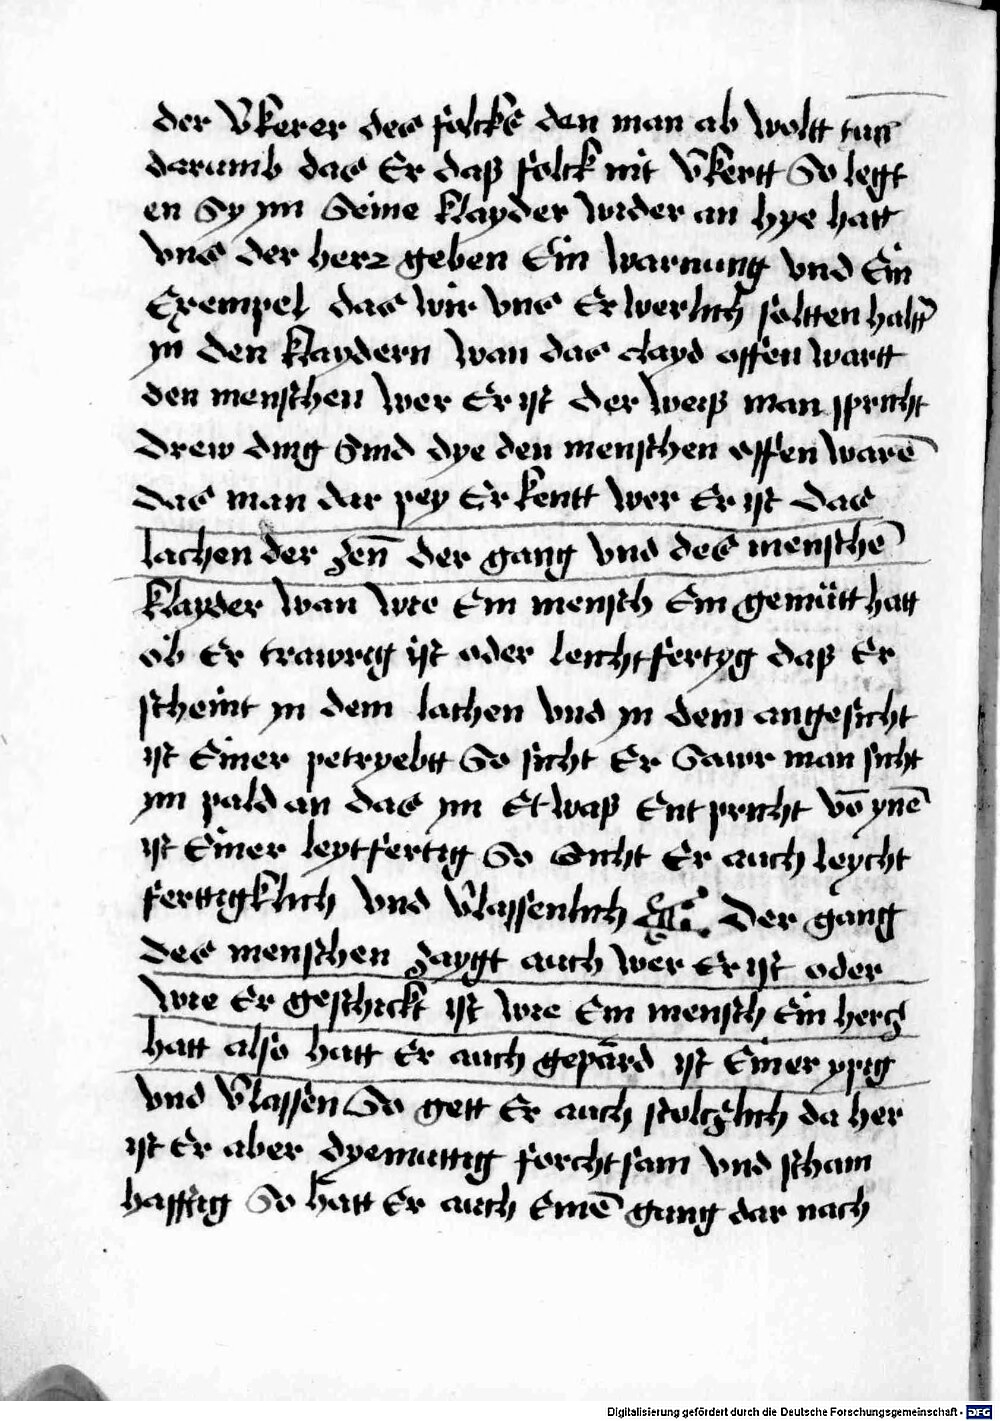 der v̄kerer des folcks den man ab woltt tun̄
darumb das Er daß folck nit v̄kertt So legt
en Sy ym Seine klayder wider an hye hatt
vns der herz geben Ein warnung vnd Ein
Exempel das wir vns Erwerlich soltten haltn̄
yn den klaydern wan das clayd offen wartt
den menschen wer Er ist der weiß man spricht
drew ding Sind dye den menschen offen warē
das man dar pey Erkentt wer Er ist das
lachen der zen̄ der gang vnd des menschē
klayder wan wie Ein mensch Ein gemütt hatt
ob Er trawrig ist oder leichtfertyg daß Er
scheint yn dem lachen vnd yn dem angesicht
ist Einer petryebtt So sicht Er Sawr man sicht
ym pald an das ym Etwaß Entpricht vō ynē
ist Einer leytfertig So Sicht Er auch leycht
ferttigklich vnd v̄lassenlich Der gang
des menschen zaygt auch wer Er ist oder
wie Er geschickt ist wie Ein mensch Ein hercz
hatt also hatt Er auch gepärd ist Einer ypig
vnd v̄lassen So gett Er auch stolczlich da her
ist Er aber dyemuttig forchtsam vnd scham
hafftig So hatt Er auch Einē gang dar nach
Digitalisierung gefördert durch die Deutsche Forschungsgemeinschaft - DFG